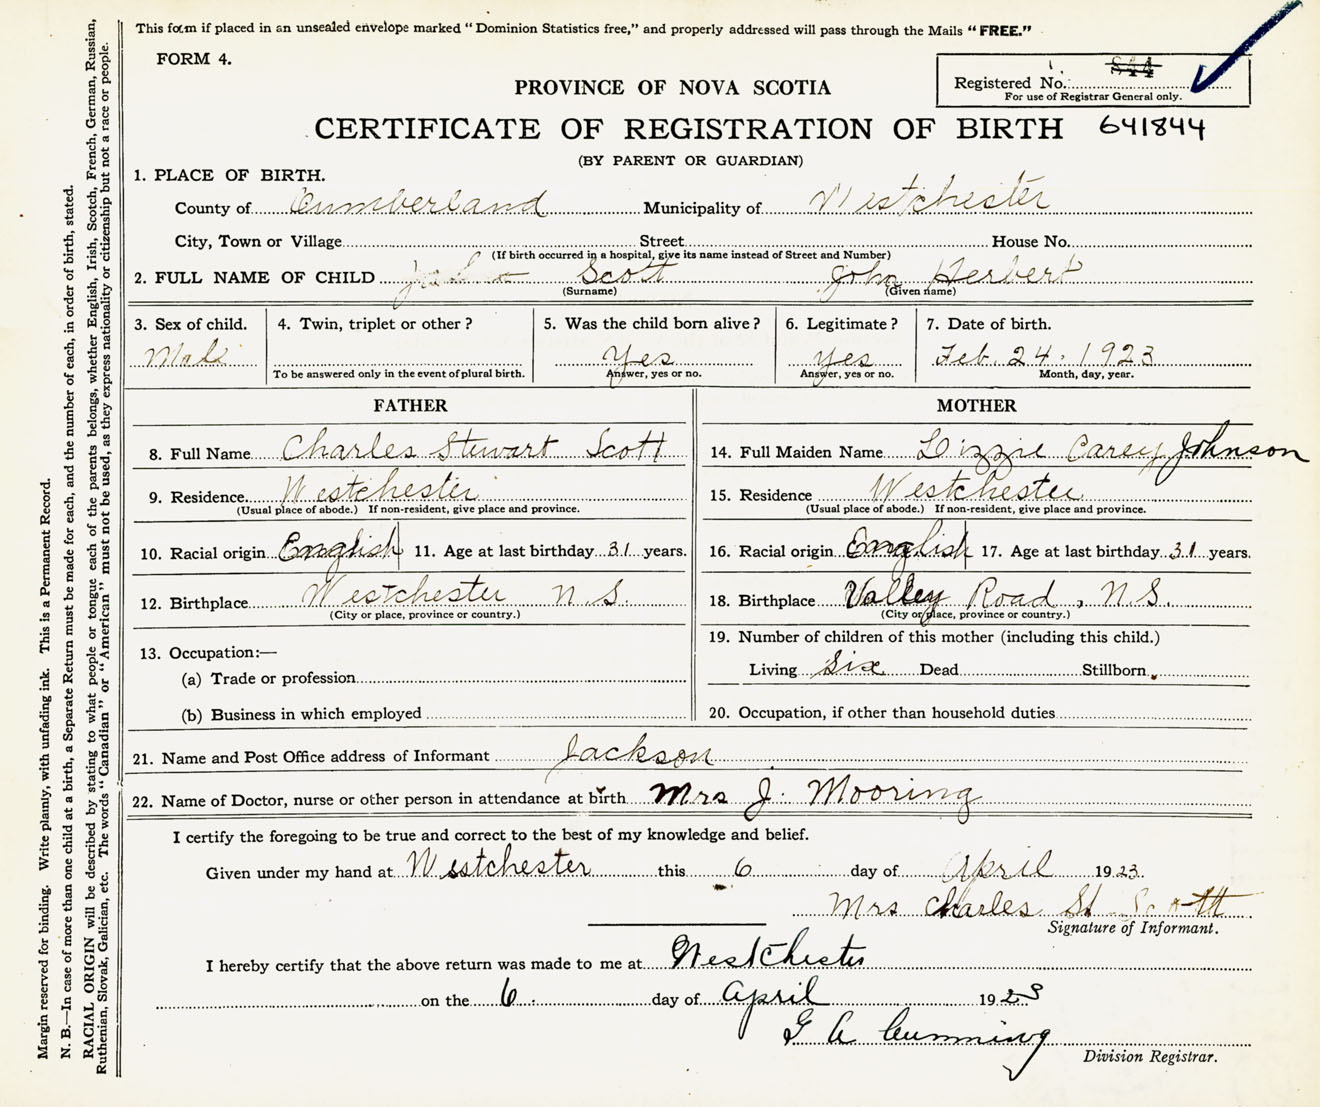 This form if placed in an unsealed envelope marked "Dominion Statistics free," and properly addressed will pass through the Mails "FREE."
FORM 4.
Registered No. 844
For use of Registrar General only.
PROVINCE OF NOVA SCOTIA
CERTIFICATE OF REGISTRATION OF BIRTH 641844
(BY PARENT OR GUARDIAN)
1. PLACE OF BIRTH.
County of Cumberland Municipality of Westchester
City, Town or Village Street House No.
(If birth occurred in a hospital, give its name instead of Street and Number)
2. FULL NAME OF CHILD Scott John Herbert
(Surname) (Given name)
3. Sex of child. 4. Twin, triplet or other? 5. Was the child born alive? 6. Legitimate? 7. Date of birth.
Male Yes yes Feb. 24. 1923
To be answered only in the event of plural birth. Answer, yes or no. Answer, yes or no. Month, day, year.
FATHER
8. Full Name Charles Stewart Scott
9. Residence Westchester
(Usual place of abode.) If non-resident, give place and province.
10. Racial origin English 11. Age at last birthday 31 years.
12. Birthplace Westchester N.S.
(City or place, province or country.)
13. Occupation:—
(a) Trade or profession
(b) Business in which employed
MOTHER
14. Full Maiden Name Lizzie Carey Johnson
15. Residence Westchester
(Usual place of abode.) If non-resident, give place and province.
16. Racial origin English 17. Age at last birthday 31 years.
18. Birthplace Valley Road, N.S.
(City or place, province or country.)
19. Number of children of this mother (including this child.)
Living Six Dead Stillborn
20. Occupation, if other than household duties
21. Name and Post Office address of Informant Jackson
22. Name of Doctor, nurse or other person in attendance at birth Mrs J. Mooring
I certify the foregoing to be true and correct to the best of my knowledge and belief.
Given under my hand at Westchester this 6 day of April 1923.
Mrs Charles St Scott
Signature of Informant.
I hereby certify that the above return was made to me at Westchester
on the 6. day of April 1923
G A Cumming
Division Registrar.
Margin reserved for binding. Write plainly, with unfading ink. This is a Permanent Record.
N. B.—In case of more than one child at a birth, a Separate Return must be made for each, and the number of each, in order of birth, stated.
RACIAL ORIGIN will be described by stating to what people or tongue each of the parents belongs, whether English, Irish, Scotch, French, German, Russian,
Ruthenian, Slovak, Galician, etc. The words "Canadian" or "American" must not be used, as they express nationality or citizenship but not a race or people.